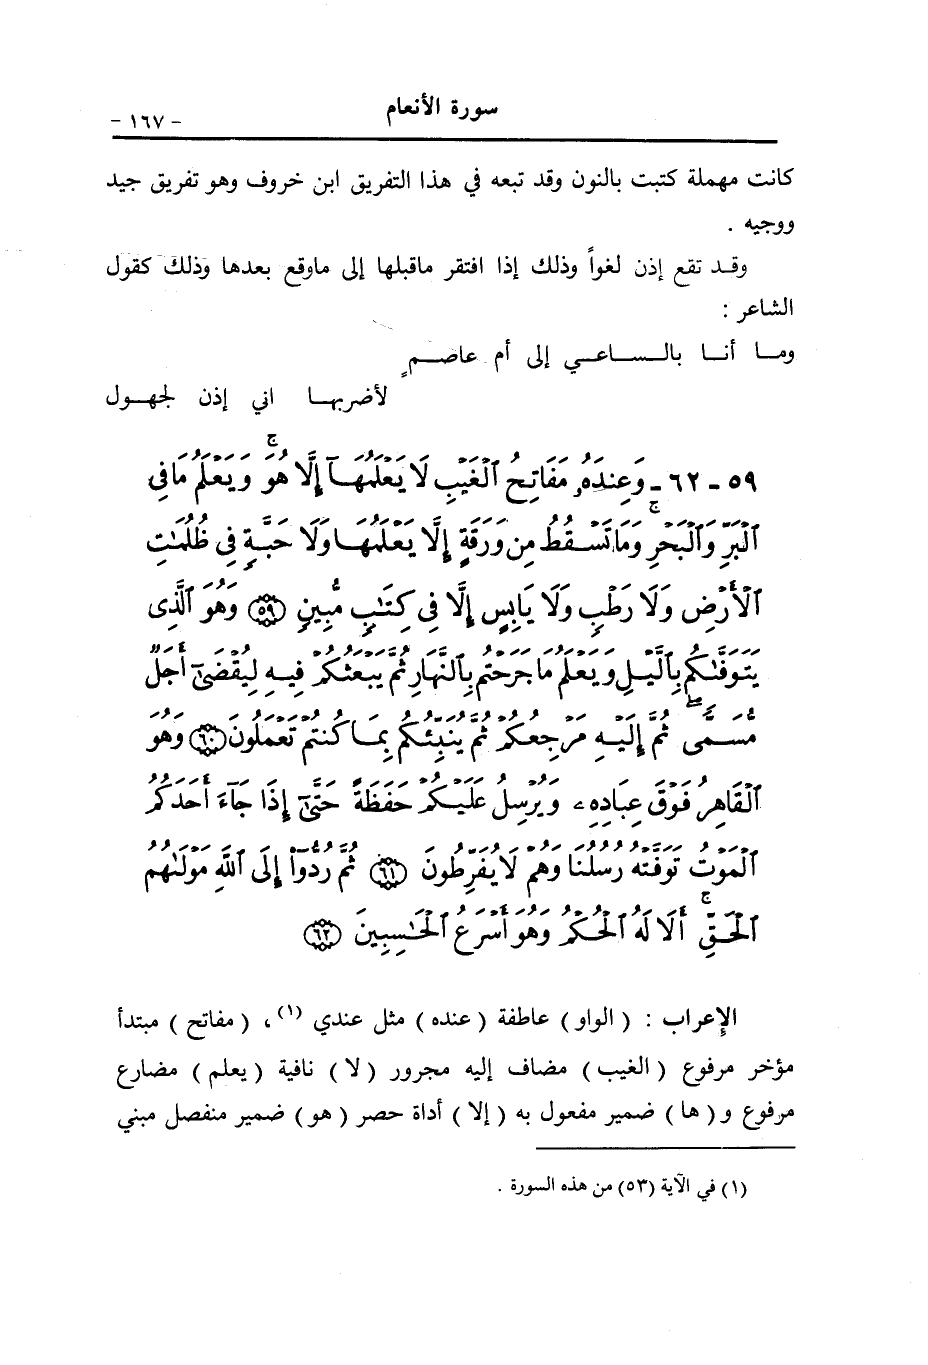 سورة الأنعام
- ١٦٧ -
كانت مهملة كتبت بالنون وقد تبعه في هذا التفريق ابن خروف وهو تفريق جيد
ووجيه .
وقـد تقع إذن لغواً وذلك إذا افتقر ماقبلها إلى ماوقع بعدها وذلك كقول
الشاعر :
ومـا أنـا بالـسـاعـي إلى أم عاصـمٍ
لأضربهـا اني إذن لجهـول
٥٩ - ٦٢ - وَعِندَهُۥ مَفَاتِحُ ٱلْغَيْبِ لَا يَعْلَمُهَآ إِلَّا هُوَ ۚ وَيَعْلَمُ مَا فِى
ٱلْبَرِّ وَٱلْبَحْرِ ۚ وَمَا تَسْقُطُ مِن وَرَقَةٍ إِلَّا يَعْلَمُهَا وَلَا حَبَّةٍ فِى ظُلُمَٰتِ
ٱلْأَرْضِ وَلَا رَطْبٍ وَلَا يَابِسٍ إِلَّا فِى كِتَٰبٍ مُّبِينٍ ﴿٥٩﴾ وَهُوَ ٱلَّذِى
يَتَوَفَّىٰكُم بِٱلَّيْلِ وَيَعْلَمُ مَا جَرَحْتُم بِٱلنَّهَارِ ثُمَّ يَبْعَثُكُمْ فِيهِ لِيُقْضَىٰٓ أَجَلٌ
مُّسَمًّى ۖ ثُمَّ إِلَيْهِ مَرْجِعُكُمْ ثُمَّ يُنَبِّئُكُم بِمَا كُنتُمْ تَعْمَلُونَ ﴿٦٠﴾ وَهُوَ
ٱلْقَاهِرُ فَوْقَ عِبَادِهِۦ وَيُرْسِلُ عَلَيْكُمْ حَفَظَةً حَتَّىٰٓ إِذَا جَآءَ أَحَدَكُمُ
ٱلْمَوْتُ تَوَفَّتْهُ رُسُلُنَا وَهُمْ لَا يُفَرِّطُونَ ﴿٦١﴾ ثُمَّ رُدُّوٓا۟ إِلَى ٱللَّهِ مَوْلَىٰهُمُ
ٱلْحَقِّ ۚ أَلَا لَهُ ٱلْحُكْمُ وَهُوَ أَسْرَعُ ٱلْحَٰسِبِينَ ﴿٦٢﴾
الإعراب : ( الواو ) عاطفة ( عنده ) مثل عندي (١) ، ( مفاتح ) مبتدأ
مؤخر مرفوع ( الغيب ) مضاف إليه مجرور ( لا ) نافية ( يعلم ) مضارع
مرفوع و ( ها ) ضمير مفعول به ( إلا ) أداة حصر ( هو ) ضمير منفصل مبني
(١) في الآية (٥٣) من هذه السورة .